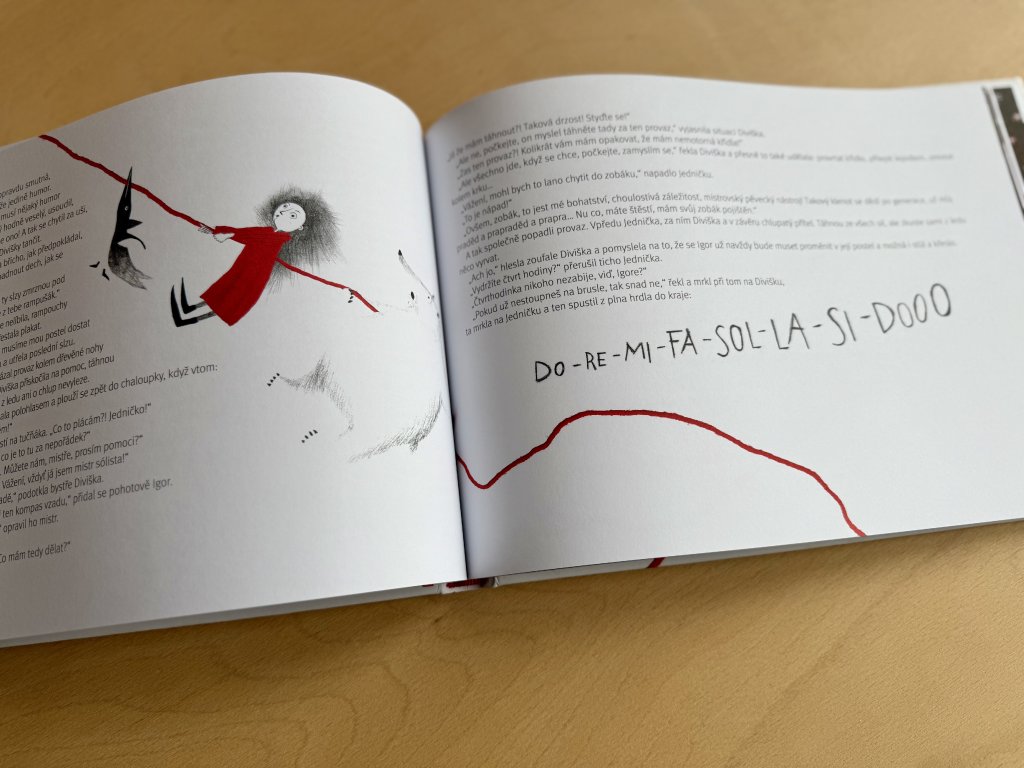 opravdu smutná,
že jediné humor.
musí nějaký humor
í hodně veselý, usoudil,
e ono! A tak se chytil za uši,
Divišky tančit.
a břicho, jak předpokládal,
padnout dech, jak se
ty slzy zmrznou pod
z tebe rampušák."
nelíbila, rampouchy
řestala plakat.
musíme mou postel dostat
a utřela poslední slzu.
ázal provaz kolem dřevěné nohy
Diviška přiskočila na pomoc, táhnou
z ledu ani o chlup nevyleze.
ala polohlasem a plouží se zpět do chaloupky, když vtom:
em!"
stí na tučňáka. „Co to plácám?! Jedničko!"
co je to tu za nepořádek?"
. Můžete nám, mistře, prosím pomoci?"
Vážení, vždyť já jsem mistr sólista!"
adě," podotkla bystře Diviška.
ten kompas vzadu," přidal se pohotově Igor.
" opravil ho mistr.
Co mám tedy dělat?"
„Já že mám táhnout?! Taková drzost! Styďte se!"
„Ale ne, počkejte, on myslel táhněte tady za ten provaz," vyjasnila situaci Diviška.
„Zas ten provaz?! Kolikrát vám mám opakovat, že mám nemotorná křídla!"
„Ale všechno jde, když se chce, počkejte, zamyslím se," řekla Diviška a přesně to také udělala:
kolem krku...
„Vážení, mohl bych to lano chytit do zobáku," napadlo Jedničku.
„To je nápad!"
„Ovšem, zobák, to jest mé bohatství, choulostivá záležitost, mistrovský pěvecký nástroj! Takový klenot se dědí po generace, už můj
praděd a prapraděd a prapra... Nu co, máte štěstí, mám svůj zobák pojištěn."
A tak společně popadli provaz. Vpředu Jednička, za ním Diviška a v závěru chlupatý přítel. Táhnou ze všech sil, ale
něco vyrvat.
„Ach jo," hlesla zoufale Diviška a pomyslela na to, že se Igor už navždy bude muset proměnit v její postel a možná i
„Vydržíte čtvrt hodiny?" přerušil ticho Jednička.
„Čtvrthodinka nikoho nezabije, viď, Igore?"
„Pokud už nestoupneš na brusle, tak snad ne," řekl a mrkl při tom na Divišku,
ta mrkla na Jedničku a ten spustil z plna hrdla do kraje:
DO-RE-MI-FA-SOL-LA-SI-DOOO